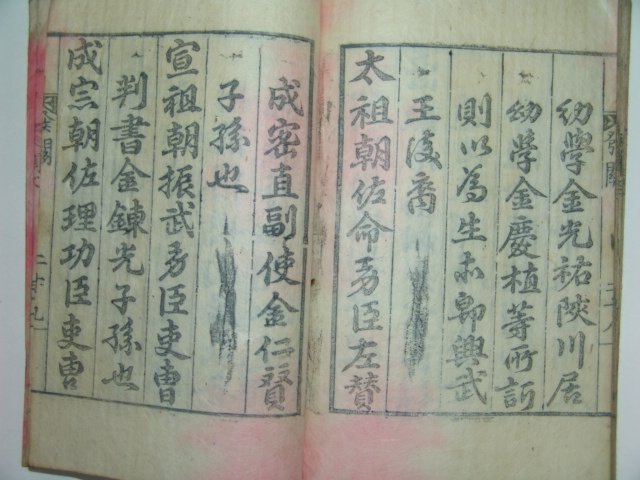 幼學金光祐陜川居
幼學金慶植等所訴
則以為生未卽興武
王後裔
太祖朝佐命勇臣左賛
成密直副使金仁賢
子孫也
宣祖朝振武勇臣吏曹
判書金鍊光子孫也
成宗朝佐理功臣吏曹